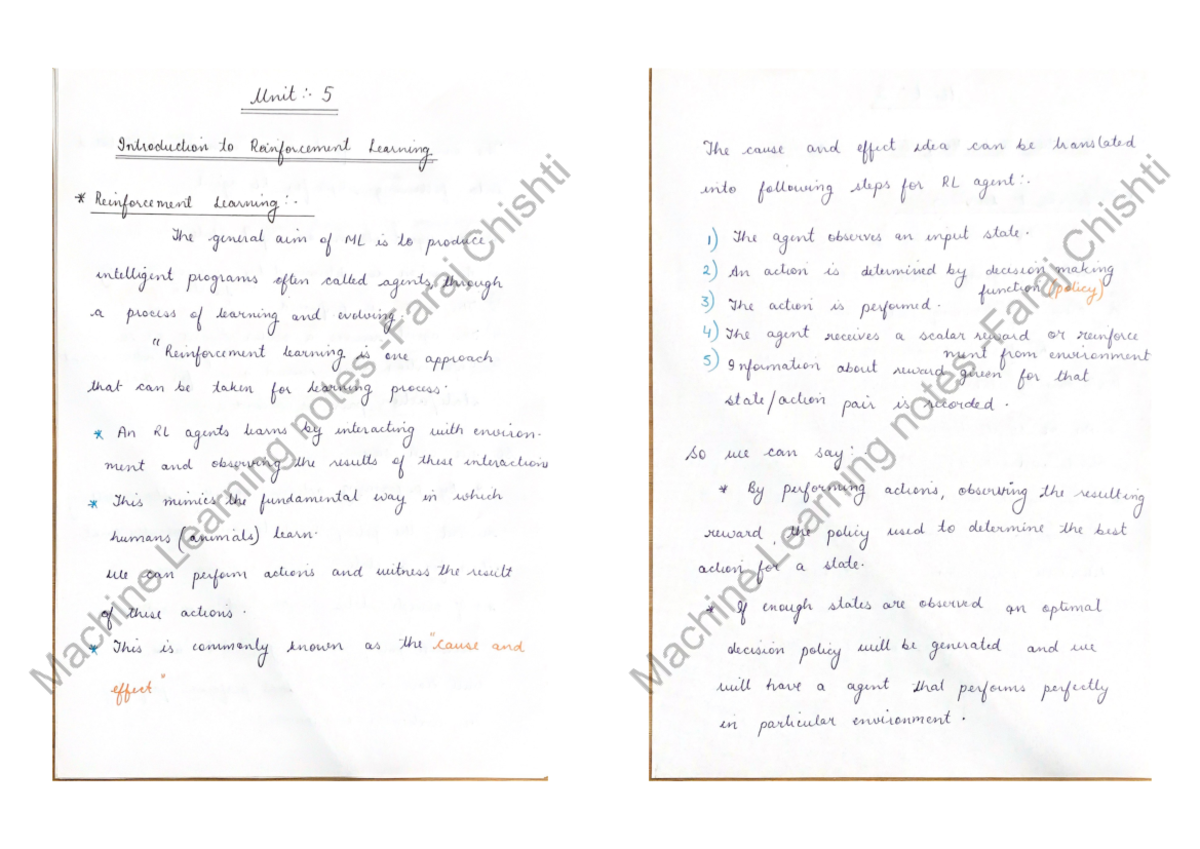 Unit :- 5
Introduction to Reinforcement Learning
* Reinforcement Learning :-
The general aim of ML is to produce
intelligent programs often called agents, through
a process of learning and evolving.
"Reinforcement learning is one approach
that can be taken for learning process.
* An RL agents learns by interacting with environ-
ment and observing the results of these interactions
* This mimics the fundamental way in which
humans (animals) learn.
We can perform actions and witness the result
of these actions.
* This is commonly known as the "cause and
effect"
Machine Learning notes -Faraj Chishti
The cause and effect idea can be translated
into following steps for RL agent :-
1) The agent observes an input state.
2) An action is determined by decision making
function (policy)
3) The action is performed.
4) The agent receives a scalar reward or reinforce
ment from environment
5) Information about reward given for that
state/action pair is recorded.
So we can say :-
* By performing actions, observing the resulting
reward, the policy used to determine the best
action for a state.
* If enough states are observed an optimal
decision policy will be generated and we
will have a agent that performs perfectly
in particular environment.
Machine Learning notes -Faraj Chishti